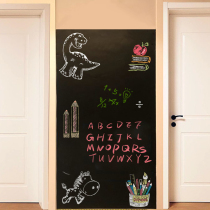 ÷
A B C D E F G
H I J K L
M N O P Q R S
T U V W X Y Z